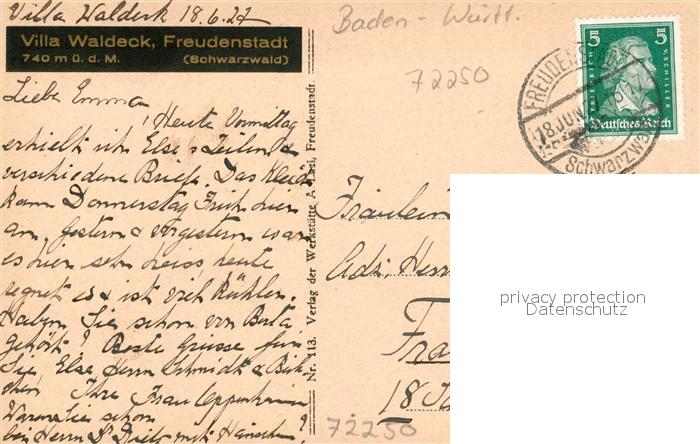 Villa Waldeck 18.6.27
Villa Waldeck, Freudenstadt
740 m ü. d. M. (Schwarzwald)
Liebe Emma
Heute Vormittag
erhielt ich Else's Zeilen &
verschiedene Briefe. Das Kleid
kam Donnerstag Früh hier
an, gestern & vorgestern war
es hier sehr heiss heute
regnet es & ist viel kühler.
Haben Sie schon von Berta
gehört? Beste Grüsse für
Sie, Else, Herrn Schmidt &
Ihre Frau Oppenheimer
Waren Sie schon
bei Herrn Dr mit Hänschen?
Nr. 113. Verlag der Werkstätte A. Lasi, Freudenstadt
Baden - Württ.
72250
5 5
FRIEDRICH V. SCHILLER
Deutsches Reich
FREUDENSTADT
18 JUN
Schwarzwa
Fräulein
Adr. Herr
Fra
18 
72250
privacy protection
Datenschutz